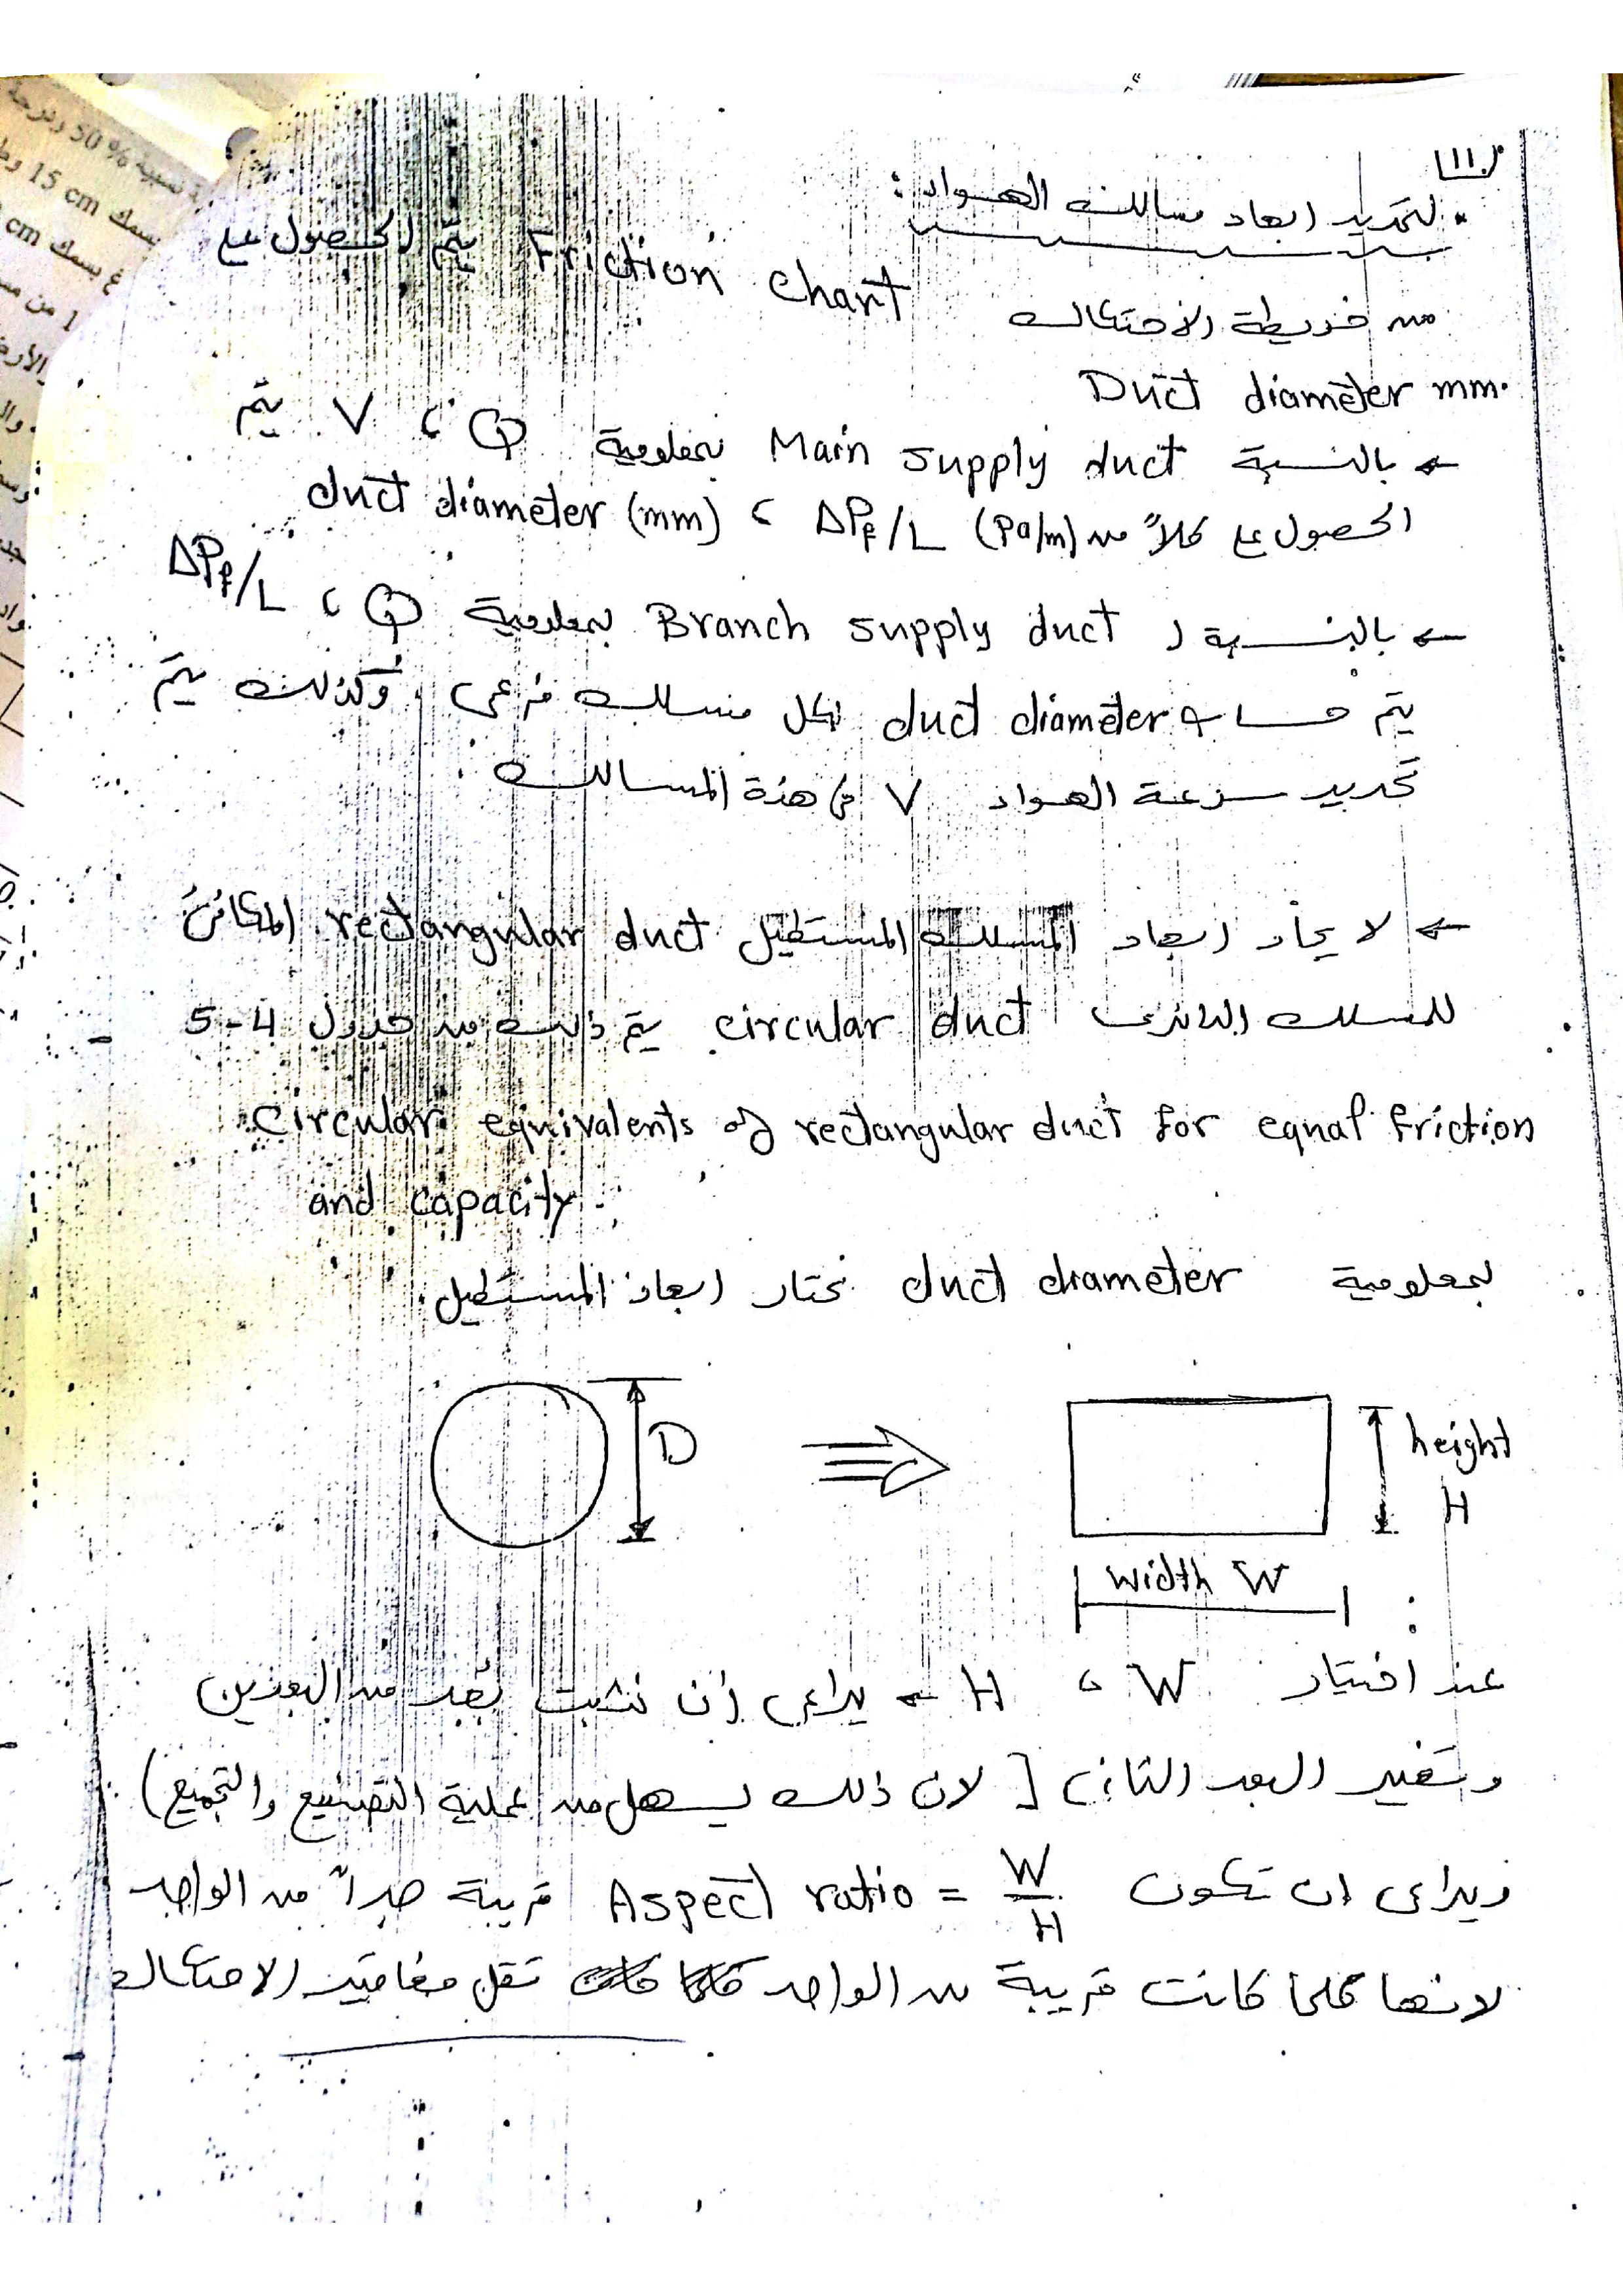 (11)
* لتحديد ابعاد مسالك الهواء :
من خريطة الاحتكاك Friction Chart يتم الحصول على
Duct diameter mm.
← بالنسبة Main supply duct بمعلومية Q ، V يتم
الحصول على كلاً من ΔPf/L (Pa/m) ، duct diameter (mm)
← بالنسبة لـ Branch supply duct بمعلومية Q ، ΔPf/L
يتم حساب duct diameter لكل مسلك فرعى وكذلك يتم
تحديد سرعة الهواء V فى هذة المسالك
← لايجاد ابعاد المسلك المستطيل rectangular duct المكافئ
للمسلك الدائرى circular duct يتم ذلك من جدول 4-5
Circular equivalents of rectangular duct for equal friction
and capacity.
بمعلومية duct diameter نختار ابعاد المستطيل.
D
height
H
width W
عند اختيار W ، H ← يراعى أن نثبت بُعد من البعدين
وتغير البعد الثانى [ لان ذلك يسهل من عملية التصنيع والتجميع)
ويراعى ان تكون Aspect ratio = W/H قريبة جداً من الواحد
لانها كلما كانت قريبة من الواحد تقل مفاقيد الاحتكاك
نسبية 50 %
بسمك 15 cm
بسمك cm
1 من